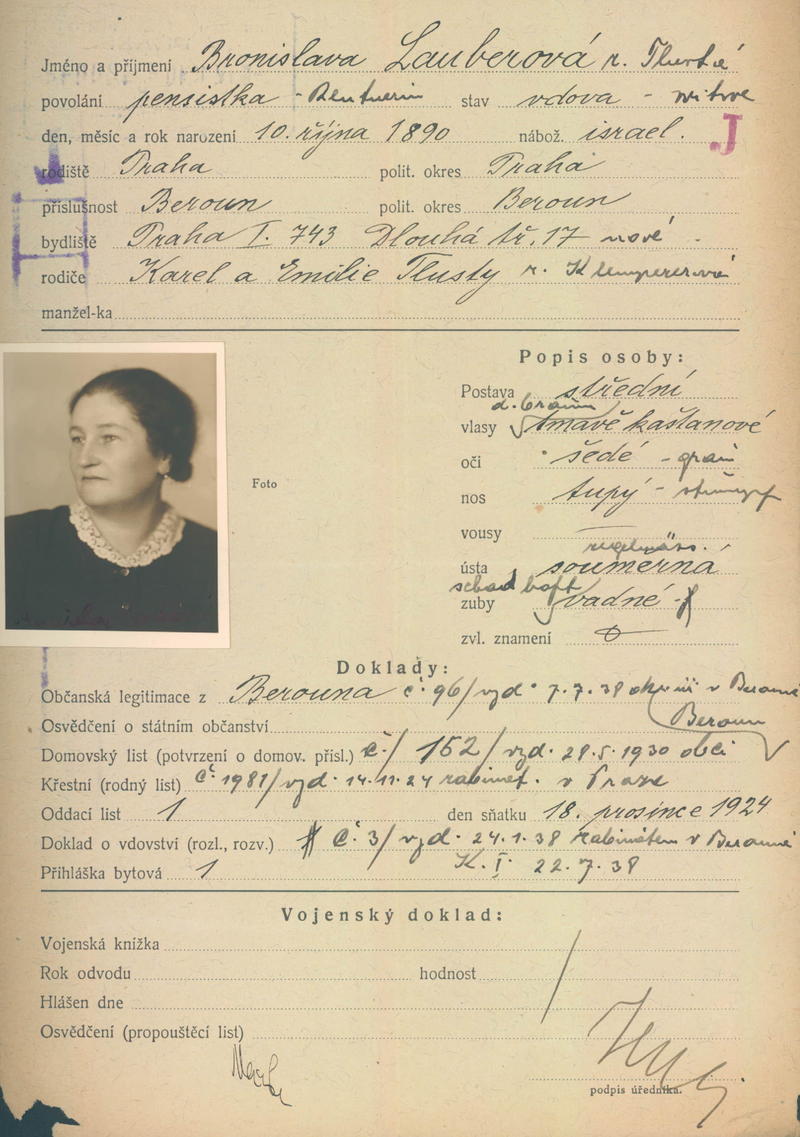 Jméno a příjmení Bronislava Lauberová r. Tlustá
povolání pensistka - Rentnerin stav vdova - witwe
den, měsíc a rok narození 10. října 1890 nábož. israel. J
rodiště Praha polit. okres Praha
příslušnost Beroun polit. okres Beroun
bydliště Praha I. 743 Dlouhá tř. 17 nové
rodiče Karel a Emilie Tlustý r. Klempererová
manžel-ka
Popis osoby:
Postava střední
d. braun
vlasy tmavě kaštanové
oči šedé - grau
Foto
nos tupý - stumpf
vousy —
regelmäss.
ústa souměrná
schadhaft
zuby vadné
zvl. znamení
Doklady:
Občanská legitimace z Berouna č. 96/ vyd. 7.7.38 okr. v Berouně
Beroun
Osvědčení o státním občanství
Domovský list (potvrzení o domov. přísl.) č./ 152/ vyd. 28.5.1930 obcí
Křestní (rodný list) č. 1981/ vyd. 14.11.24 rabinát. v Praze
Oddací list 1 den sňatku 18. prosince 1924
Doklad o vdovství (rozl., rozv.) č. 3/ vyd. 24.1.38 rabinátem v Berouně
Přihláška bytová 1 K. I. 22.7.38
Vojenský doklad:
Vojenská knížka
Rok odvodu hodnost
Hlášen dne
Osvědčení (propouštěcí list)
podpis úředníka.